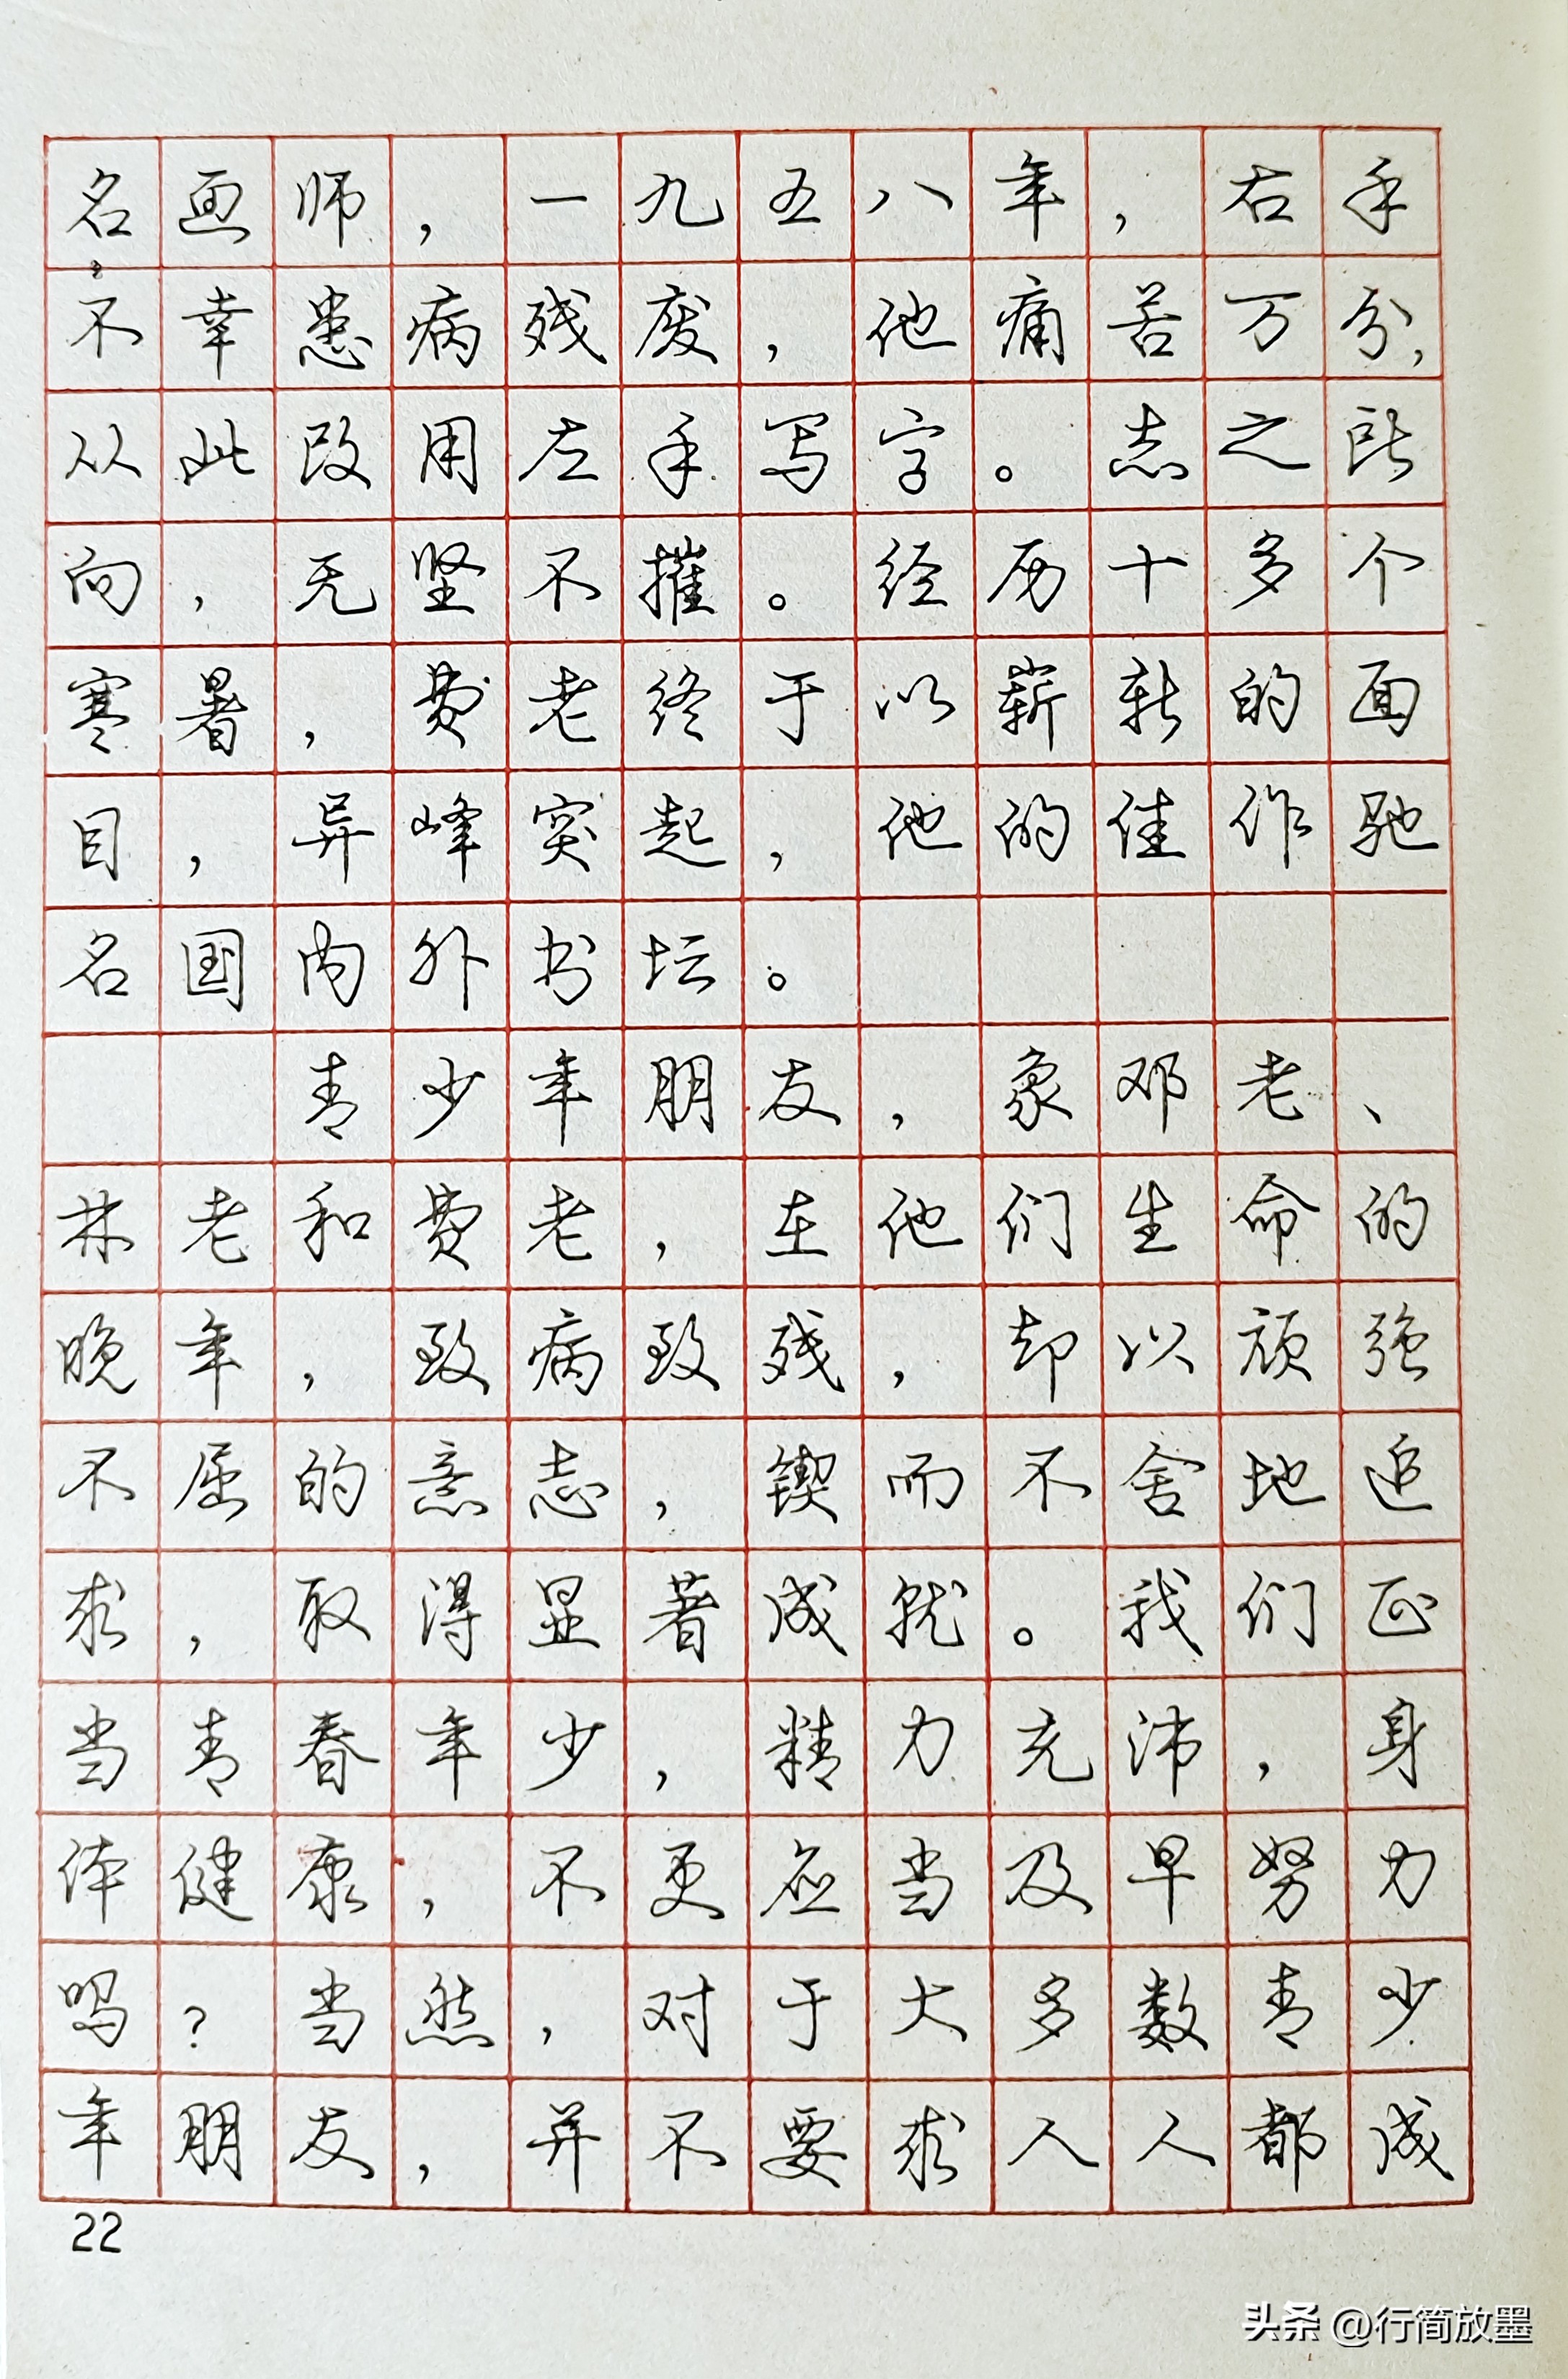 名画师，一九五八年，右手
不幸患病残废，他痛苦万分，
从此改用左手写字。志之所
向，无坚不摧。经历十多个
寒暑，费老终于以崭新的面
目，异峰突起，他的佳作驰
名国内外书坛。
青少年朋友，象邓老、
林老和费老，在他们生命的
晚年，致病致残，却以顽强
不屈的意志，锲而不舍地追
求，取得显著成就。我们正
当青春年少，精力充沛，身
体健康，不更应当及早努力
吗？当然，对于大多数青少
年朋友，并不要求人人都成
22
头条 @行简放墨